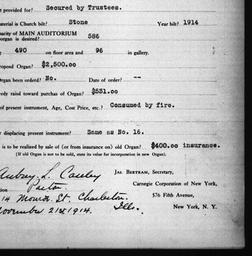 provided for? Secured by Trustees.
aterial is Church bit? Stone Year bit? 1914
pacity of MAIN AUDITORIUM organ is desired? 586
y 490 on floor area and 96 in gallery.
oposed Organ? $2,500.oo
Organ been ordered? No. Date of order? --
eady raised towar purchas of Organ? $531.oo
of present instrument, Age, Cost Price, etc.? Consumed by fire.
displacing present instrument? Same as No. 16.
is to be realized by sale of (or from insurance on) old Organ? $400.oo insurance.
(If old Organ is not to be sold, state its value for incorporation in new Organ).
Aubrey L. Cauley
Pastor
14 Monroe St. Charleston,
Ills.
November 21st 1914.
Jas. Bertram, Secretary,
Carnegie Corporation of New York,
576 Fifth Avenue,
New York, N. Y.